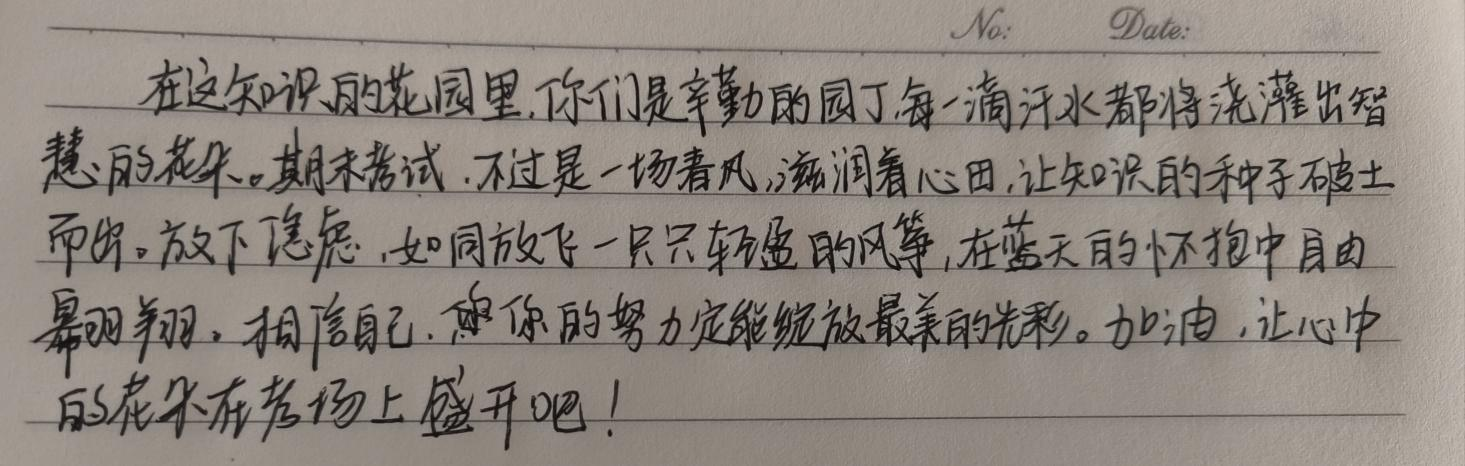 No: Date:
在这知识的花园里,你们是辛勤的园丁,每一滴汗水都将浇灌出智
慧的花朵。期末考试,不过是一场春风,滋润着心田,让知识的种子破土
而出。放下焦虑,如同放飞一只只轻盈的风筝,在蓝天的怀抱中自由
翱翔。相信自己,你的努力定能绽放最美的光彩。加油,让心中
的花朵在考场上盛开吧!